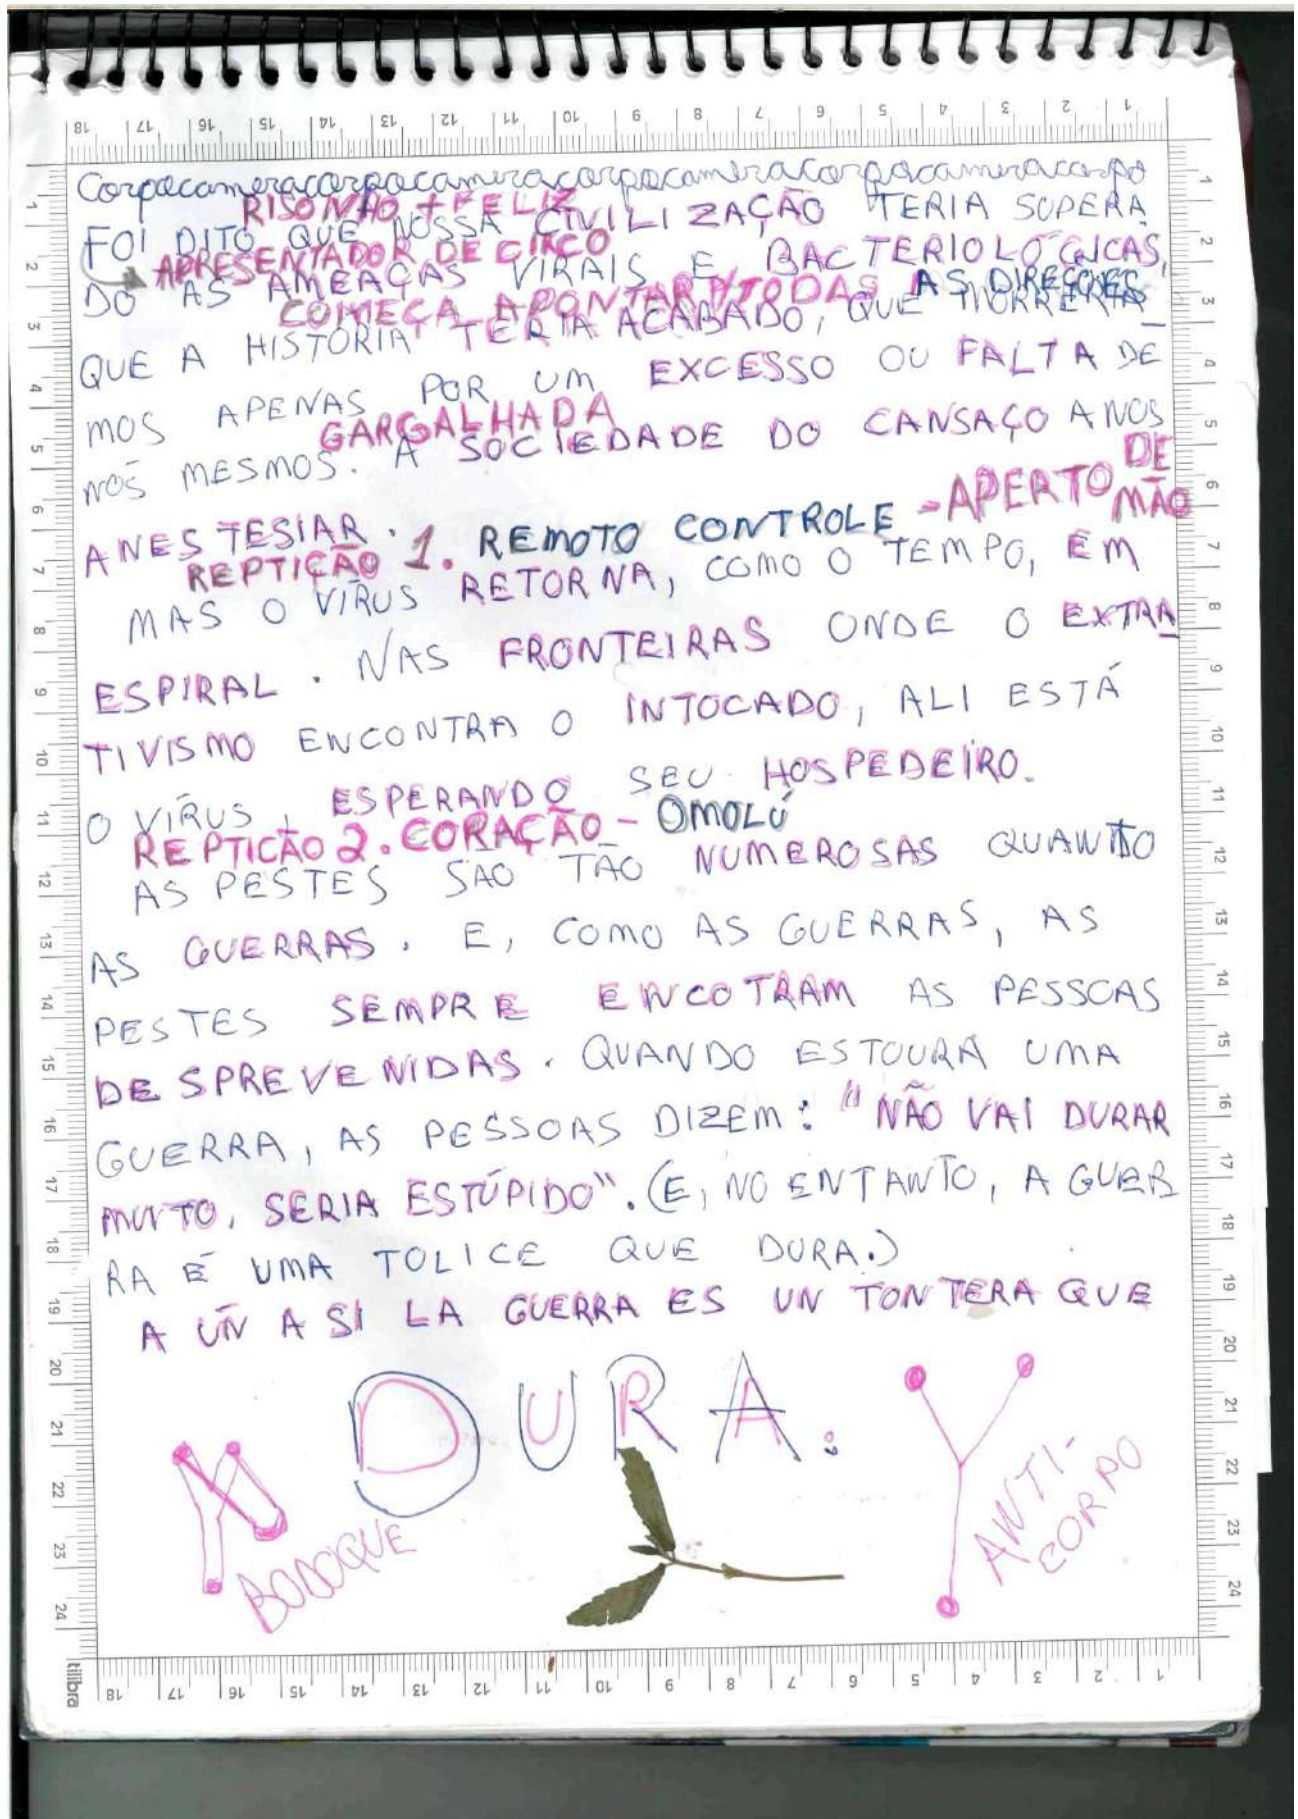 Corpocameracorpocameracorpocameracorpocameracorpo
RISONHO + FELIZ
FOI DITO QUE NOSSA CIVILIZAÇÃO TERIA SUPERA
APRESENTADOR DE CIRCO
DO AS AMEAÇAS VIRAIS E BACTERIOLÓGICAS,
COMEÇA APONTAR P/TODAS AS DIREÇOES
QUE A HISTÓRIA TERIA ACABADO, QUE MORRERIA_
MOS APENAS POR UM EXCESSO OU FALTA DE
GARGALHADA
NÓS MESMOS. A SOCIEDADE DO CANSAÇO A NOS
ANESTESIAR.
REPTIÇÃO 1. REMOTO CONTROLE - APERTO DE MÃO
MAS O VÍRUS RETORNA, COMO O TEMPO, EM
ESPIRAL. NAS FRONTEIRAS ONDE O EXTRA
TIVISMO ENCONTRA O INTOCADO, ALI ESTÁ
O VÍRUS, ESPERANDO SEU HOSPEDEIRO.
REPTICÃO 2. CORAÇÃO - OMOLÚ
AS PESTES SÃO TÃO NUMEROSAS QUANTO
AS GUERRAS. E, COMO AS GUERRAS, AS
PESTES SEMPRE ENCOTRAM AS PESSOAS
DESPREVENIDAS. QUANDO ESTOURA UMA
GUERRA, AS PESSOAS DIZEM: "NÃO VAI DURAR
MUITO, SERIA ESTÚPIDO". (E, NO ENTANTO, A GUER
RA É UMA TOLICE QUE DURA.)
A ÚN A SI LA GUERRA ES UN TONTERA QUE
DURA.
BODOQUE
ANTI-
CORPO
tilibra